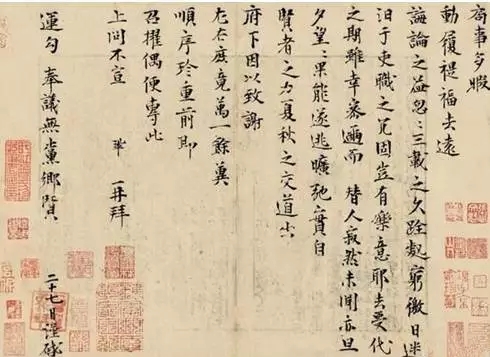 局事多暇
動履禔福去遠
誨論之益忽忽三載之久跧處窮徼日迷
汨于吏職之冗固豈有樂意耶去受代
之期雖幸密邇而替人寂然未聞亦旦
夕望望果能遂逃曠弛實自
賢者之力夏秋之交道出
府下因以致謝
左右庶竟萬一餘冀
順序珍重前即
召擢偶便專此
上問不宣 鞏再拜
運勾奉議無黨鄉賢 二十七日謹啟